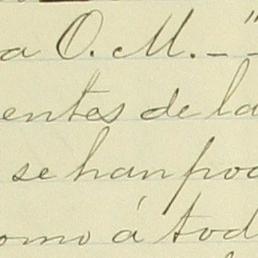 a O. M. — "
entes de la
se han pod
omo á tod